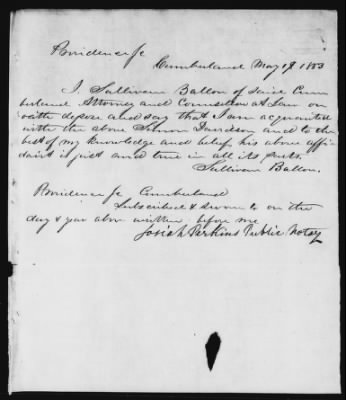 Providence Sc
Cumberland May 19 1853
I, Sullivan Ballou of Said Cum
berland Attorney and Counsellor at Law on
oath depose and say that I am acquainted
with the above Simon Davidson and to the
best of my knowledge and belief, his above affi
davit is just and true in all its parts.
Sullivan Ballou.
Providence Sc Cumberland
Subscribed & sworn to on the
day & year above written before me
Josiah Perkins Public Notary